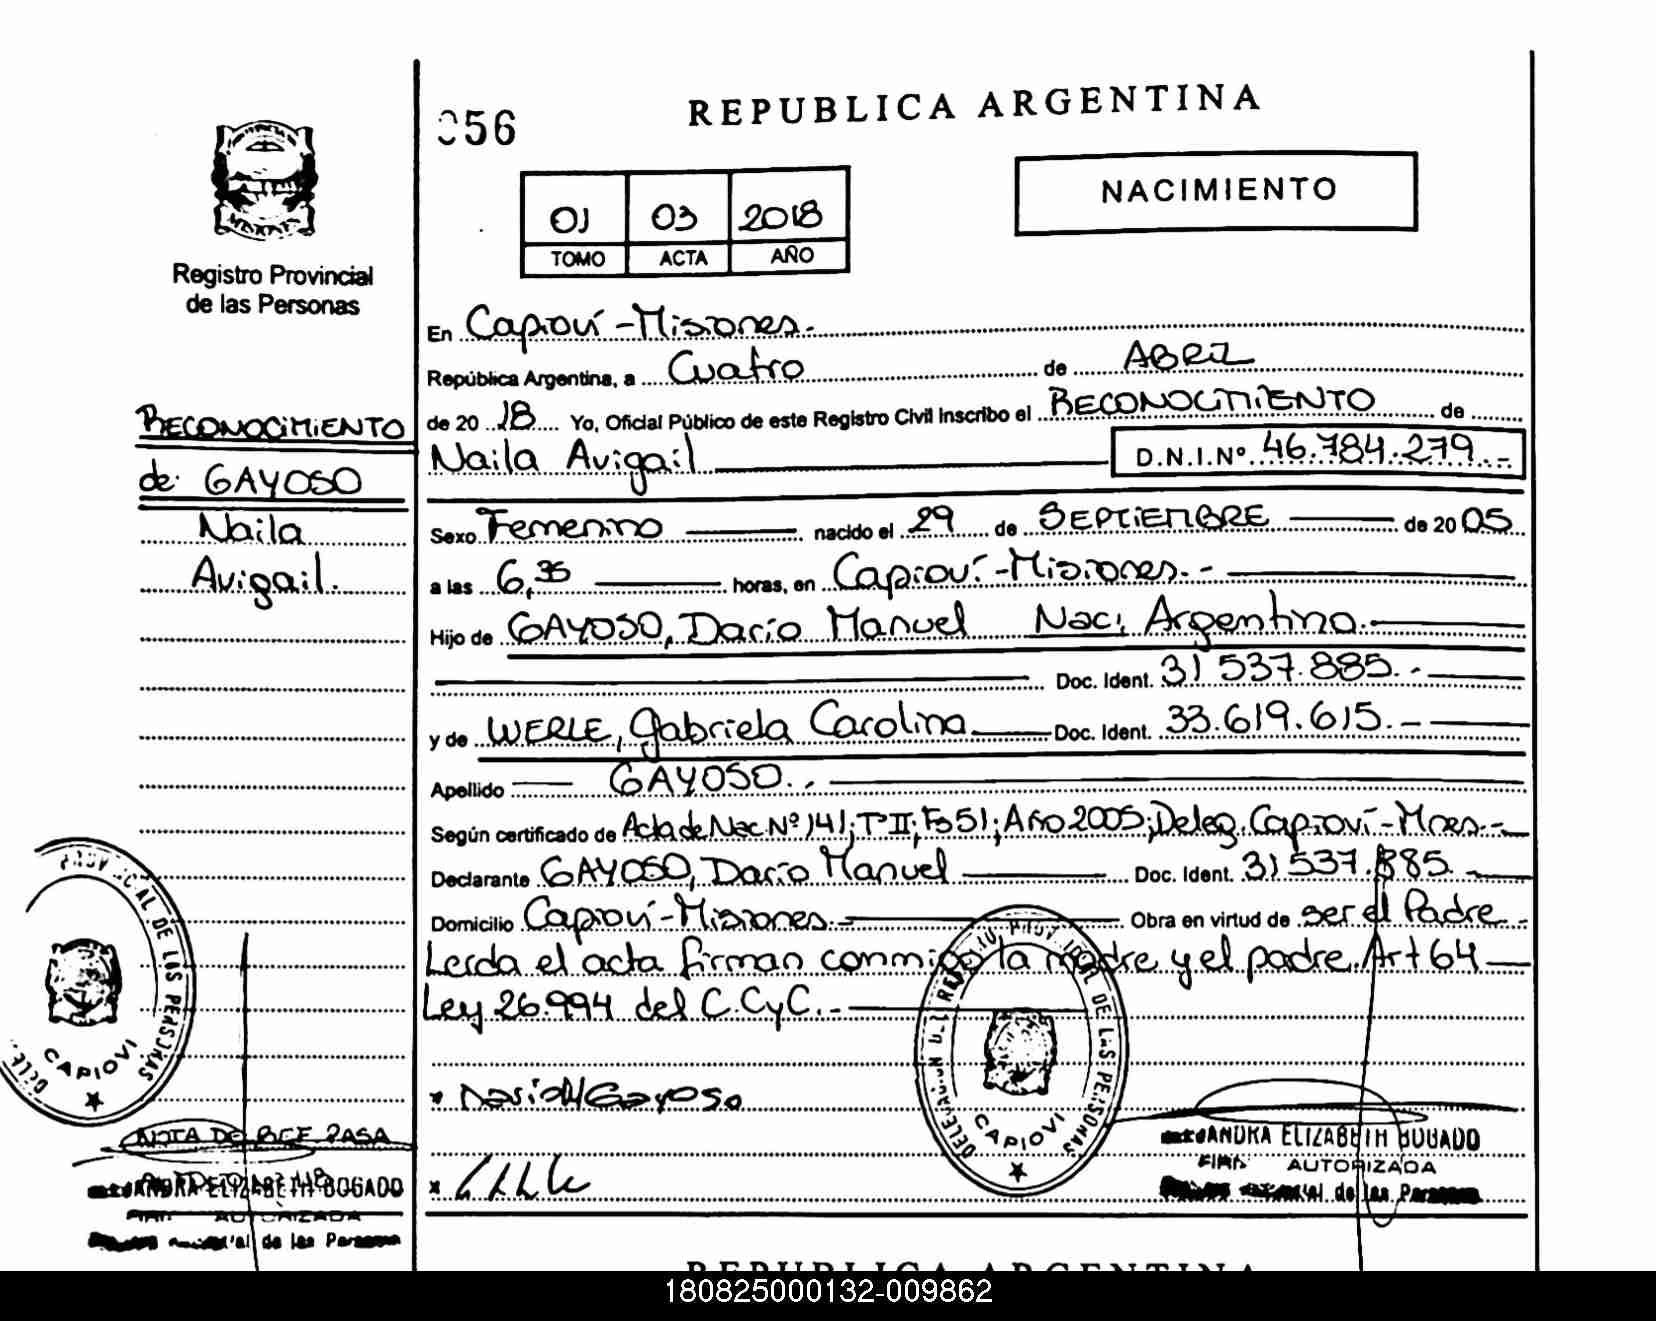 056
REPUBLICA ARGENTINA
NACIMIENTO
01 03 2018
TOMO ACTA AÑO
Registro Provincial
de las Personas
En Capioví - Misiones.-
República Argentina, a Cuatro de ABRIL
de 2018 Yo, Oficial Público de este Registro Civil Inscribo el RECONOCIMIENTO de
Naila Avigail D.N.I.Nº 46.784.279.-
RECONOCIMIENTO
de: GAYOSO
Naila
Avigail.
Sexo Femenino nacido el 29 de SEPTIEMBRE de 2005
a las 6,35 horas, en Capioví - Misiones.-
Hijo de GAYOSO, Darío Manuel Nac; Argentina.-
Doc. Ident. 31537.885.-
y de WERLE, Gabriela Carolina Doc. Ident. 33.619.615.-
Apellido GAYOSO.-
Según certificado de Acta de Nac. Nº 141; Tº II; Fº 51; Año 2005; Deleg. Capioví - Mnes.-
Declarante GAYOSO, Darío Manuel Doc. Ident. 31537.885.
Domicilio Capioví - Misiones.- Obra en virtud de ser el Padre.-
Leída el acta firman conmigo la madre y el padre. Art 64
Ley 26.994 del C.CyC.-
PROVINCIAL DE LAS PERSONAS
CAPIOVI
DELEGACION DEL REGISTRO PROVINCIAL DE LAS PERSONAS
CAPIOVI
* Dario M Gayoso
NOTA DE REF PASA
ELIZABETH BOGADO
AUTORIZADA
de las Personas
ELIZABETH BOGADO
AUTORIZADA
de las Personas
REPUBLICA ARGENTINA
180825000132-009862